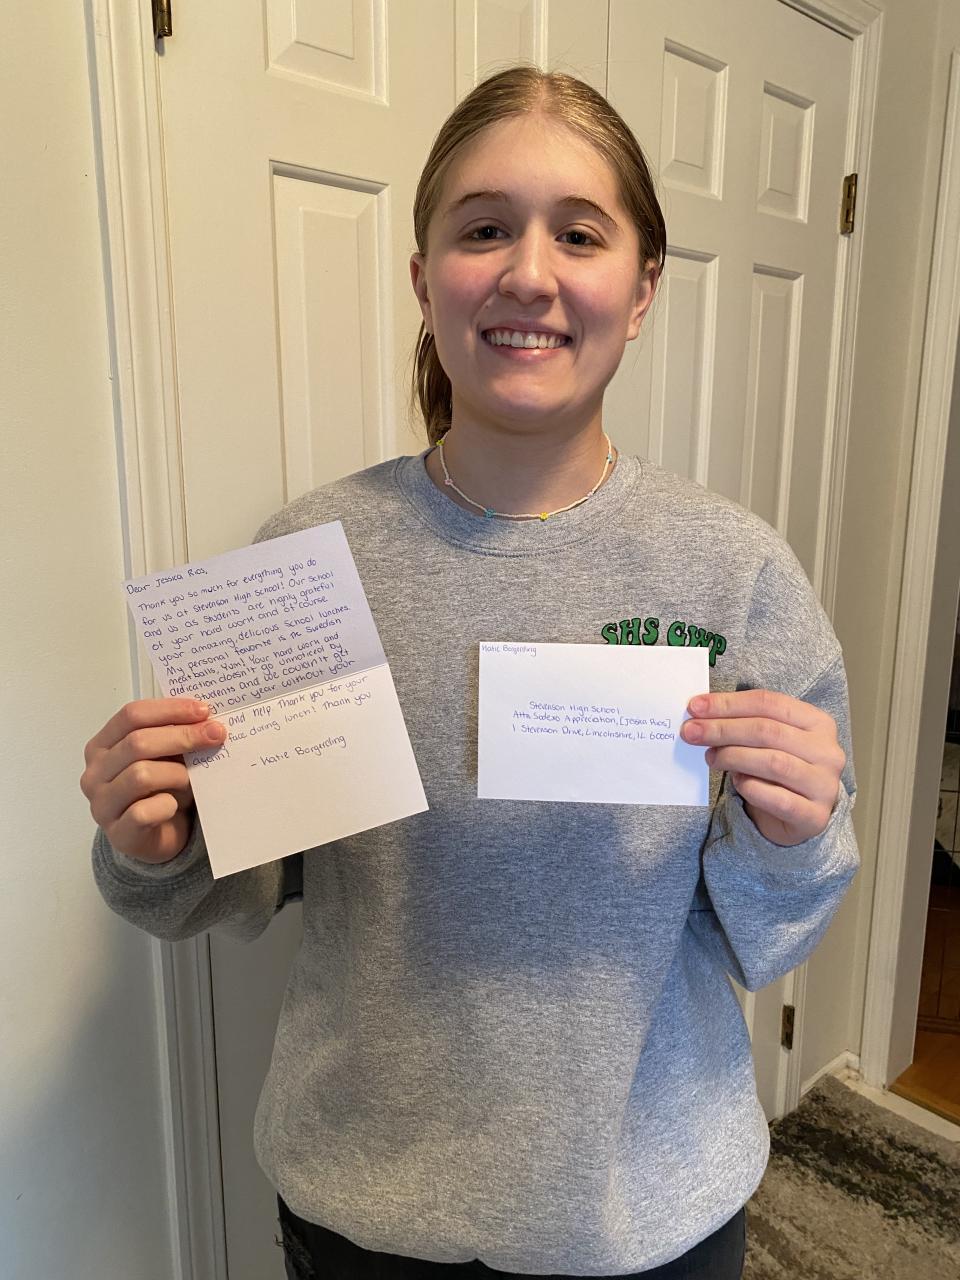 Dear Jessica Rios,
Thank you so much for everything you do
for us at Stevenson High School! Our school
and us as students are highly grateful
of your hard work and of course
your amazing, delicious school lunches.
My personal favorite is the Swedish
meatballs, Yum! Your hard work and
dedication doesn't go unnoticed by
students and we couldn't get
our year without your
and help. Thank you for your
face during lunch! Thank you
again!
- Katie Borgerding
SHS CWP
Katie Borgerding
Stevenson High School
Attn Sodexo Appreciation, [Jessica Rios]
1 Stevenson Drive, Lincolnshire, IL 60069